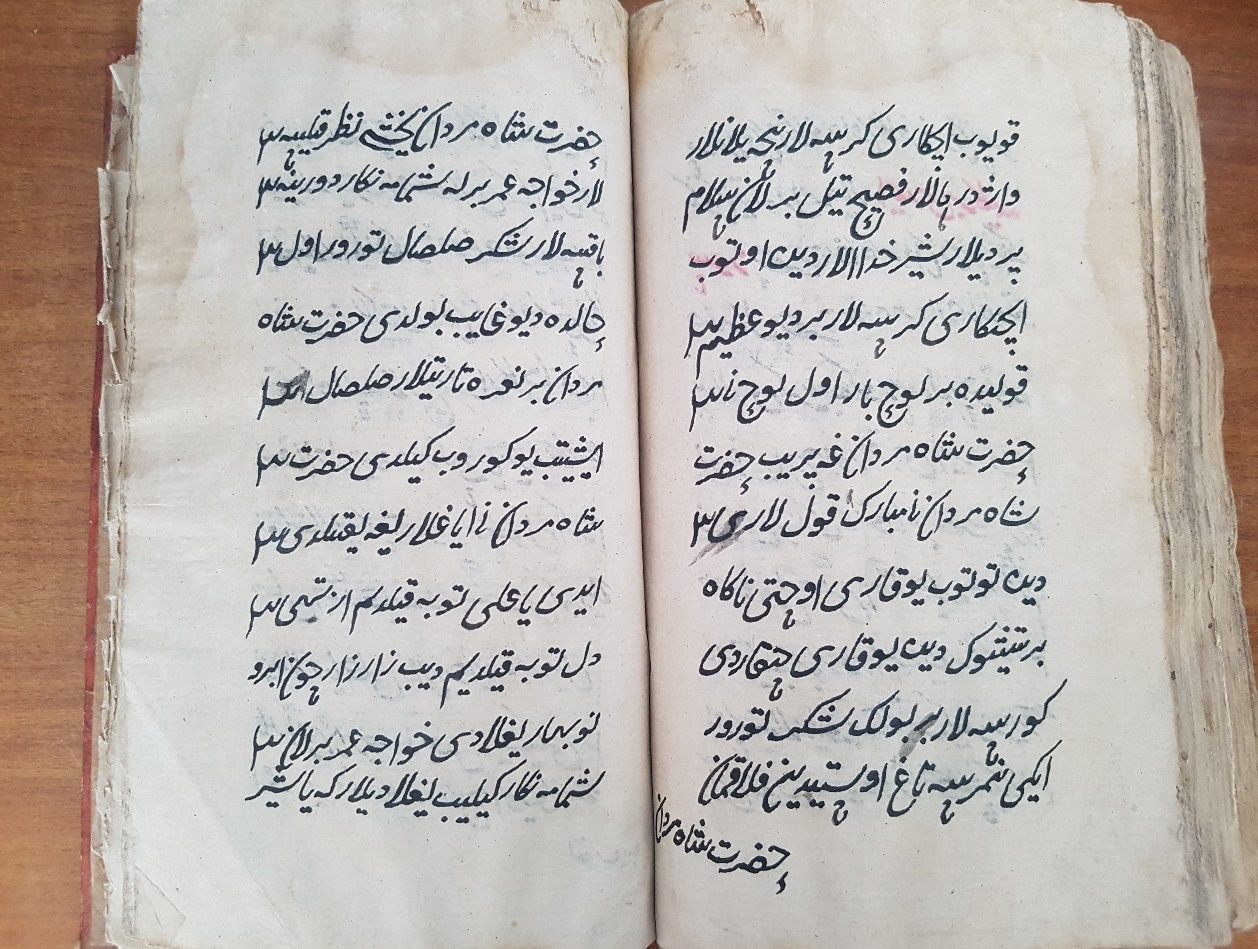 قویوب ایچکاری کرسه لار نچه یلانلار
واژدرهالار فصیح تیل برلان سلام
بردیلار شیر خدا الار دین اوتوب
ایچکاری کرسه لار بر دیو عظیم ۳
قولیده بر لوح بار اول لوح نی ۳
حضرت شاه مردان غه بریب حضرت
شاه مردان نی مبارک قول لاری ۳
دین توتوب یوقاری اوچتی ناکاه
بر تیتوک دین یوقاری چیقاردی
کورسه لار بر بولک لشکر تورور
ایکی نمرسه تاغ اوستیدین فلاقمان
حضرت شاه مردان
حضرت شاه مردان یخشی نظر قیلسه ۳
لار خواجه عمر برله شمامه نکار دورینه ۳
باقسه لار لشکر صلصال تورور اول ۳
حالده دیو غایب بولدی حضرت شاه
مردان بر نعره تارتیلار صلصال ۳
ایشیتیب یوکوروب کیلدی حضرت ۳
شاه مردان نی ایاغلاریغه یقیلدی ۳
ایدی یا علی توبه قیلدیم از تهی ۳
دل توبه قیلدیم دیب زار زار چون ابرو
نوبهار یغلادی خواجه عمر برلان ۳
شمامه نکار کیلیب یغلادیلار که یا شیر